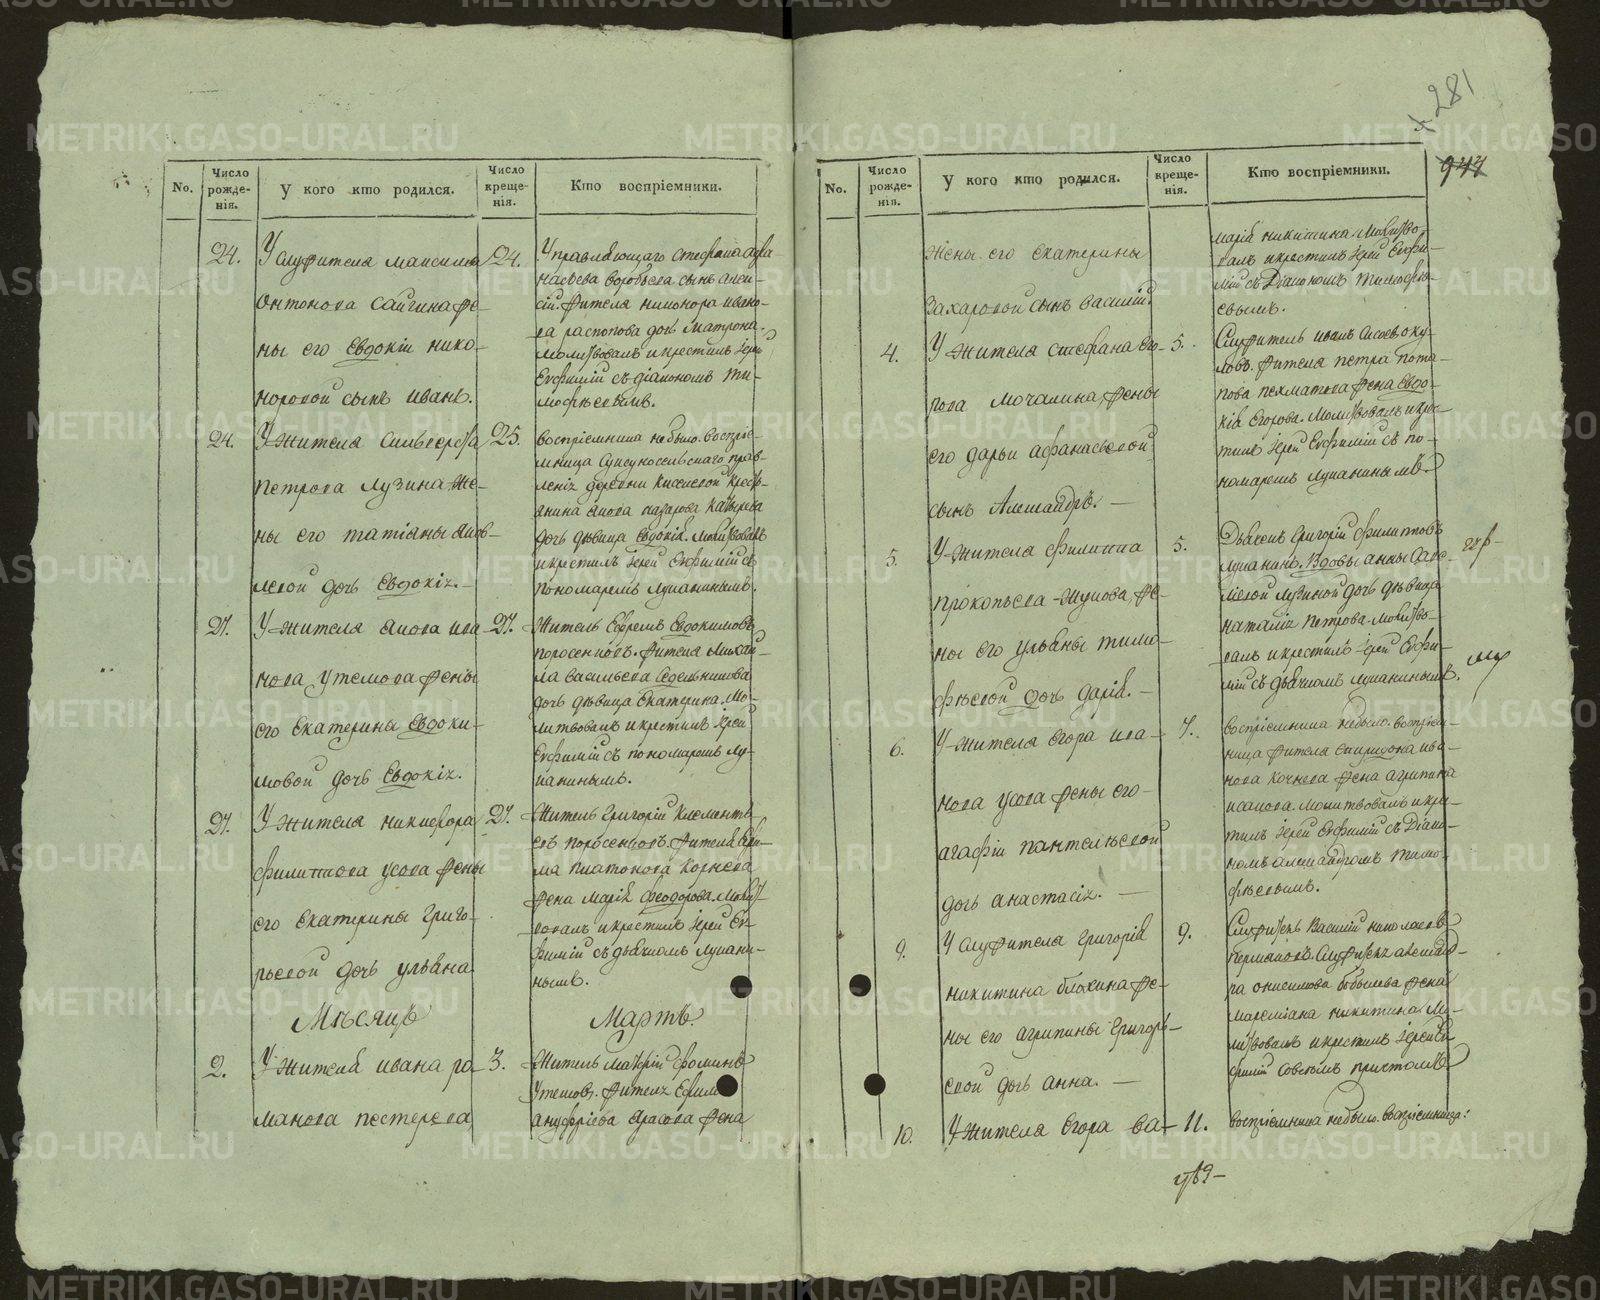 281
944
No.
Число рожде-нія.
У кого кто родился.
Число креще-нія.
Кто воспріемники.
24.
У служителя Максима
Антонова Сайгина же-
ны его Евдокіи Нико-
норовой сынъ Иванъ.
24.
Управляющаго Стефана Афа
насьева Воробьева сынъ Алек-
сій. жителя Никонора Ивано-
ва Распопова дочь Матрона.
Молитвовалъ и крестилъ Іерей
Евфимій съ діакономъ Ти-
мофѣевымъ.
24.
У жителя Сильвестра
Петрова Лузина же-
ны его Татіаны Яков-
левой дочь Евдокія.
25.
воспріемника небыло. воспріе-
мница
деревни Киселевой кресть-
янина Якова Назарова
дочь дѣвица Евдокія. Молитвовалъ
и крестилъ Іерей Евфимій съ
пономаремъ Луканинымъ.
27.
У жителя Якова Ива
нова Утемова жены
его Екатерины Евдоки-
мовой дочь Евдокія.
27.
Житель Ефремъ Евдокимовъ
Поросенковъ. жителя Михай-
ла Васильева Седельникова
дочь дѣвица Екатерина. Мо-
литвовалъ и крестилъ Іерей
Евфимій съ пономаремъ Лу-
канинымъ.
27.
У жителя Никифора
Филиппова Усова жены
его Екатерины Григо-
рьевой дочь Ульяна.
27.
Житель Григорій Климентъ-
евъ Поросенковъ. жителя
ма Платонова Корнева
жена Марія Феодорова. Молит-
вовалъ и крестилъ Іерей Ев-
фимій съ дьячкомъ Лукани-
нымъ.
Мѣсяцъ Мартъ.
2.
У жителя Ивана Ро-
манова Пестерева
3.
Житель Макрій Фоминъ
Утемовъ. жителя Ефима
Ануфріева Арасова жена
No.
Число рожде-нія.
У кого кто родился.
Число креще-нія.
Кто воспріемники.
жены его Екатерины
Захаровой сынъ Василій.
Марія Никитина. Молитво-
валъ и крестилъ Іерей Евфи-
мій съ Діакономъ Тимофѣ-
евымъ.
4.
У жителя Стефана Его-
рова Мочалина, жены
его Дарьи Афанасьевой
сынъ Александръ.
5.
Служитель Иванъ
жителя Петра Пота-
пова Пехматова жена Евдо-
кія Егорова. Молитвовалъ и кре-
стилъ Іерей Евфимій съ по-
номаремъ Луканинымъ.
5.
У жителя Филиппа
Прокопьева Жукова, же-
ны его Ульяны Тимо-
фѣевой дочь Дарія.
5.
Дьячекъ Григорій Филипповъ
Луканинъ. Вдовы Анны Саве-
льевой Лузиной дочь дѣвица
Наталія Петрова. Молитво-
валъ и крестилъ Іерей Евфи-
мій съ дьячкомъ Луканинымъ.
6.
У жителя Егора Ива-
нова Усова жены его
Агафіи Пантелѣевой
дочь Анастасія.
7.
воспріемника небыло. воспріем-
ница жителя Спиридона Ива-
нова Кочнева жена Агрипина
Исакова. Молитвовалъ и кре-
стилъ Іерей Евфимій съ Діако-
номъ Александромъ Тимо-
фѣевымъ.
9.
У служителя Григорія
Никитина Блохина же-
ны его Агрипины Григорь-
евой дочь Анна.
9.
Служитель Василій Николаевъ
Пермяковъ. Служителя Александ-
ра Онисимова Бобылева жена
Мареміана Никитина. Мо-
литвовалъ и крестилъ Іерей Ев-
фимій со всѣмъ причтомъ.
10.
У жителя Егора Ва-
11.
воспріемника небыло. воспріемница: